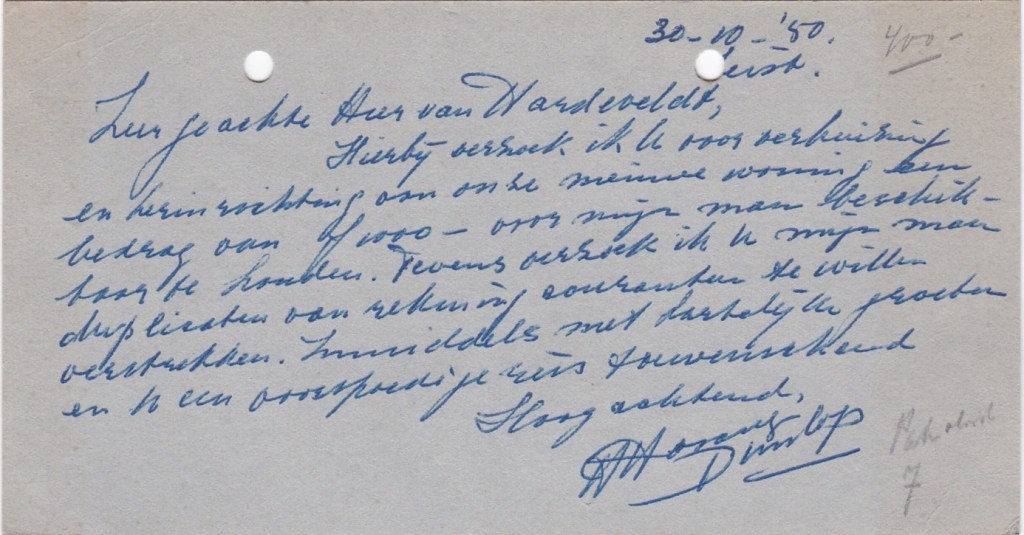 30-10-'50.
400-
Zeist.
Zeer geachte Heer van Hardeveldt,
Hierbij verzoek ik U voor verhuizing
en herinrichting van onze nieuwe woning een
bedrag van f 1000- voor mijn man beschik-
baar te houden. Tevens verzoek ik U mijn man
duplicaten van rekening couranten te willen
verstrekken. Inmiddels met hartelijke groeten
en U een voorspoedige reis toewenschend
Hoogachtend,
Dunlop
7